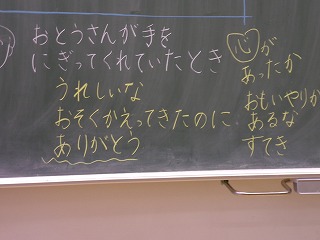 おとうさんが手を
にぎってくれていたとき
うれしいな
おそくかえってきたのに
ありがとう
心が
あったか
おもいやりが
あるな
すてき